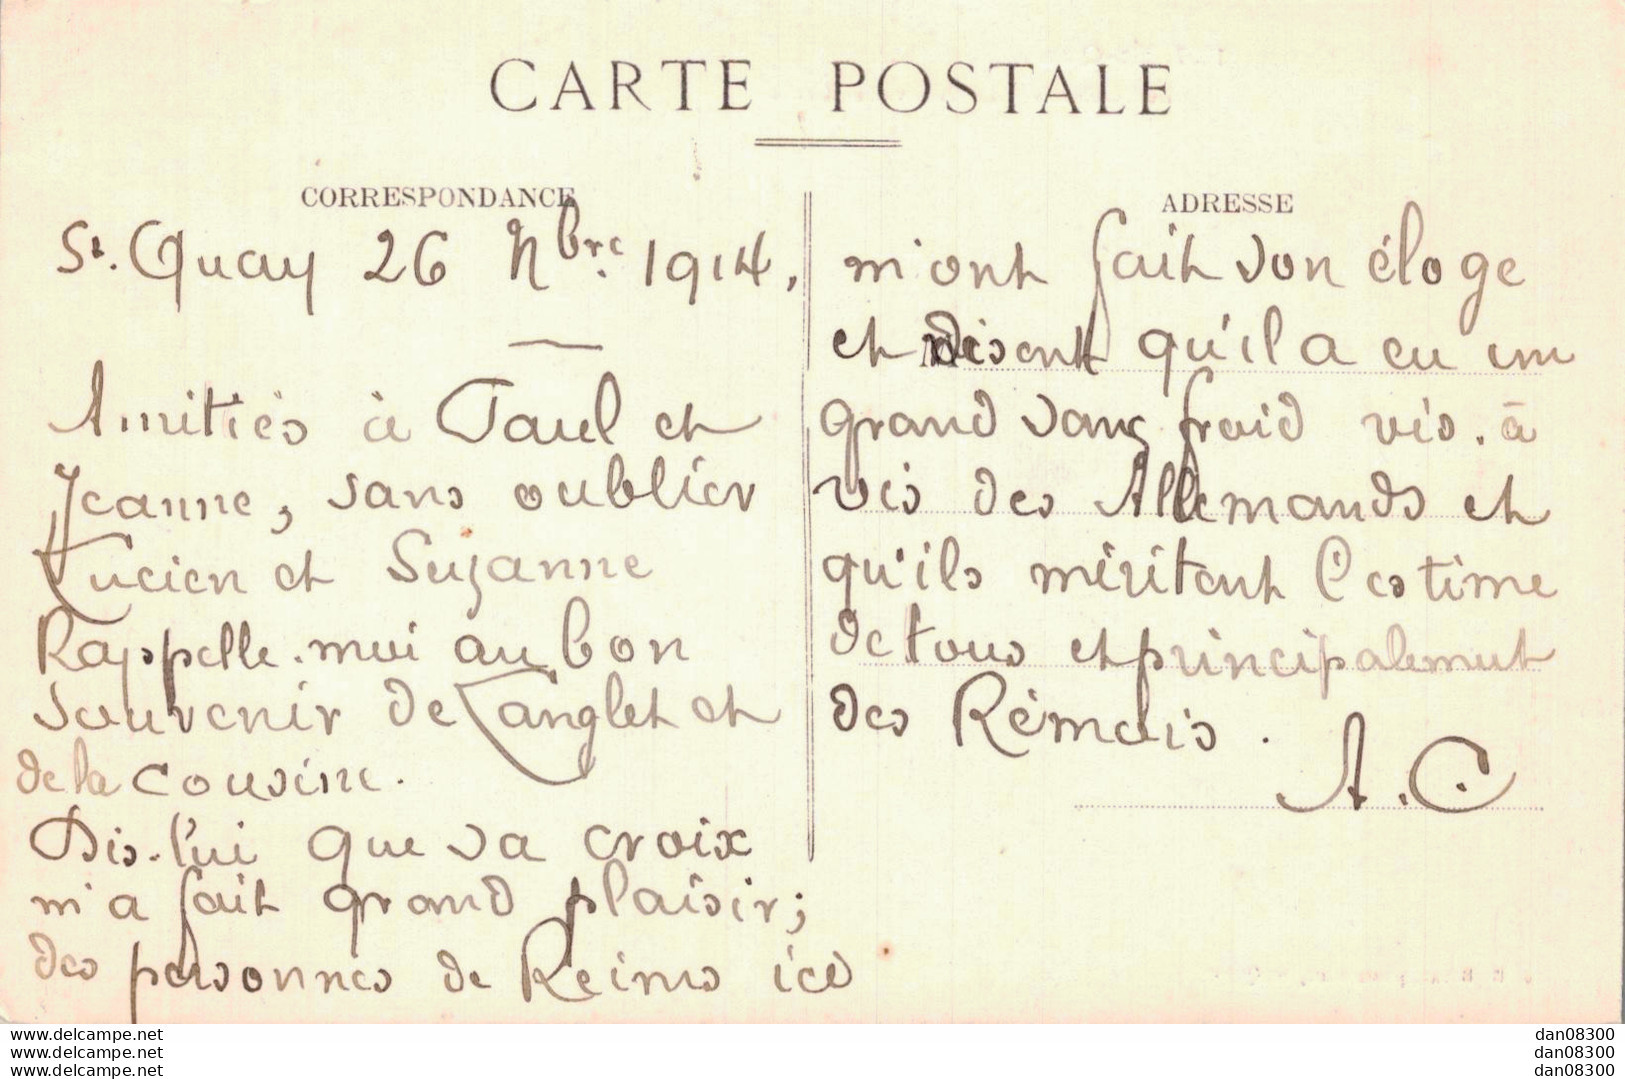 CARTE POSTALE
CORRESPONDANCE
St. Quay 26 Nbre. 1914.
Amitiés à Paul et
Jeanne, sans oublier
Lucien et Suzanne
Rappelle-moi au bon
souvenir de Langlet et
de la cousine.
Dis-lui que sa croix
m'a fait grand plaisir;
des personnes de Reims ici
ADRESSE
m'ont fait son éloge
et disent qu'il a eu un
grand sang froid vis-à
vis des Allemands et
qu'ils méritent l'estime
de tous et principalement
des Rémois.
A. C.
www.delcampe.net
www.delcampe.net
www.delcampe.net
dan08300
dan08300
dan08300